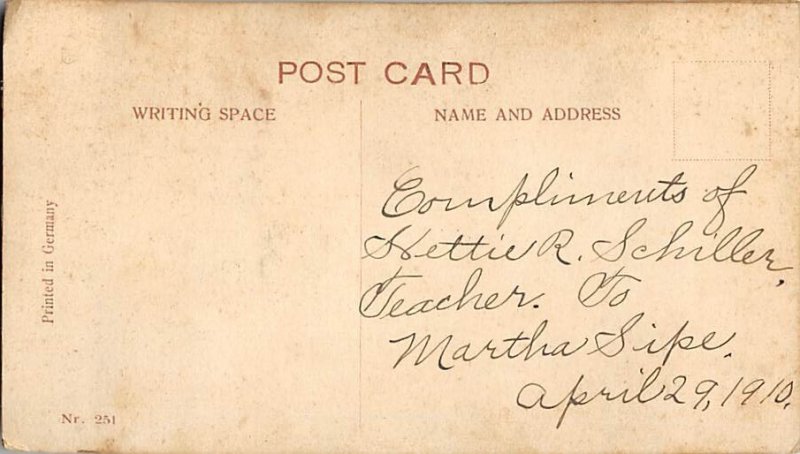 POST CARD
WRITING SPACE
NAME AND ADDRESS
Printed in Germany
Compliments of
Nettie R. Schiller,
Teacher. To
Martha Sipe.
April 29, 1910.
Nr. 251